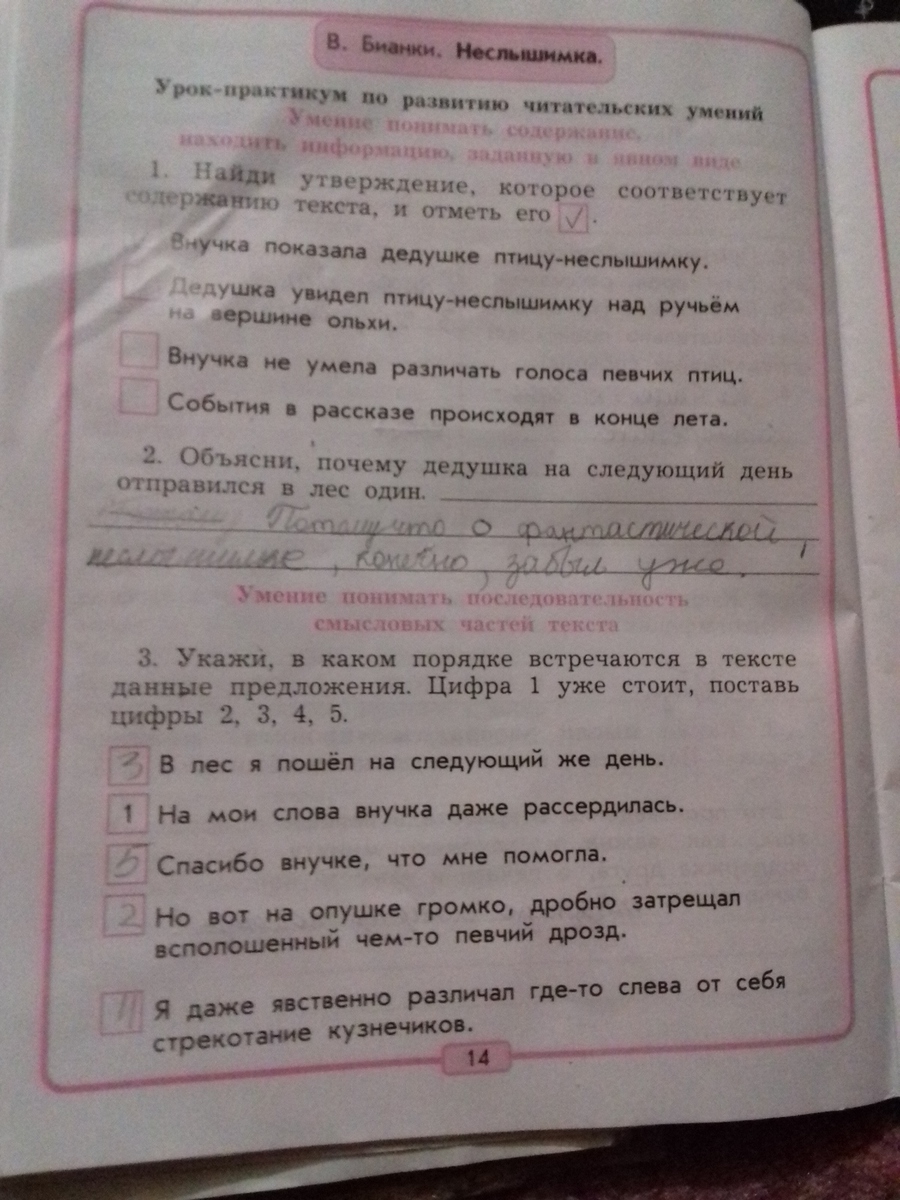 В. Бианки. Неслышимка.
Урок-практикум по развитию читательских умений
Умение понимать содержание,
находить информацию, заданную в явном виде
1. Найди утверждение, которое соответствует
содержанию текста, и отметь его ✓.
Внучка показала дедушке птицу-неслышимку.
Дедушка увидел птицу-неслышимку над ручьём
на вершине ольхи.
Внучка не умела различать голоса певчих птиц.
События в рассказе происходят в конце лета.
2. Объясни, почему дедушка на следующий день
отправился в лес один.
Потому что о фантастической
, конечно, забыл уже.
Умение понимать последовательность
смысловых частей текста
3. Укажи, в каком порядке встречаются в тексте
данные предложения. Цифра 1 уже стоит, поставь
цифры 2, 3, 4, 5.
3 В лес я пошёл на следующий же день.
1 На мои слова внучка даже рассердилась.
5 Спасибо внучке, что мне помогла.
2 Но вот на опушке громко, дробно затрещал
всполошенный чем-то певчий дрозд.
4 Я даже явственно различал где-то слева от себя
стрекотание кузнечиков.
14